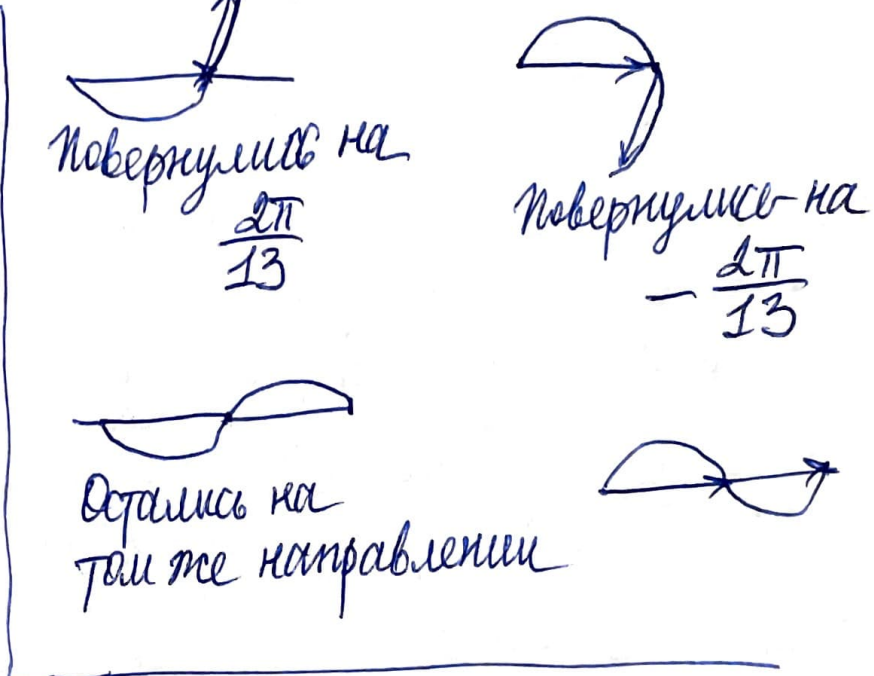 Повернулись на
2π
13
Повернулись на
− 2π
13
Остались на
том же направлении